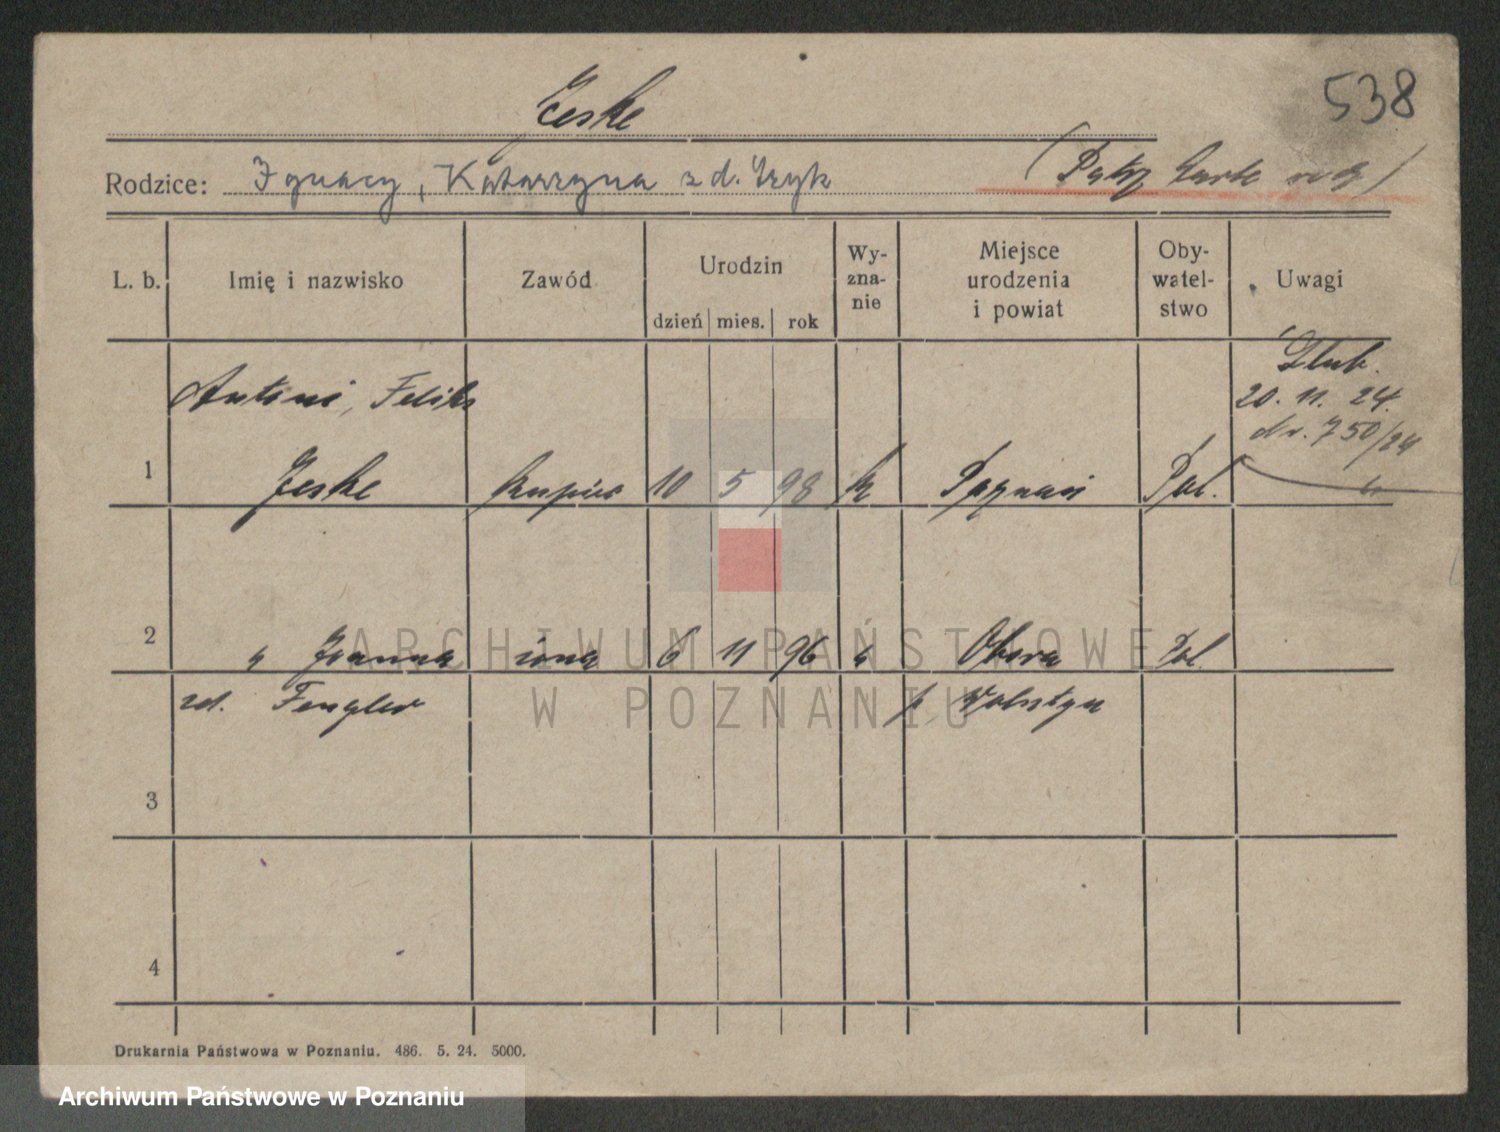 538
Jeske
Rodzice: Ignacy, Katarzyna z d. Izyk (Patrz kartę rodz)
L. b. Imię i nazwisko Zawód Urodzin dzień mies. rok Wy-zna-nie Miejsce urodzenia i powiat Oby-watel-stwo Uwagi
Ślub.
Antoni, Feliks 20. 11. 24.
Nr. 750/24
1 Jeske kupiec 10 5 98 k Poznań Pol.
2 " Joanna żona 6 11 96 " Obora Pol.
zd. Fengler p. Wolsztyn
3
4
Drukarnia Państwowa w Poznaniu. 486. 5. 24. 5000.
ARCHIWUM PAŃSTWOWE
W POZNANIU
Archiwum Państwowe w Poznaniu